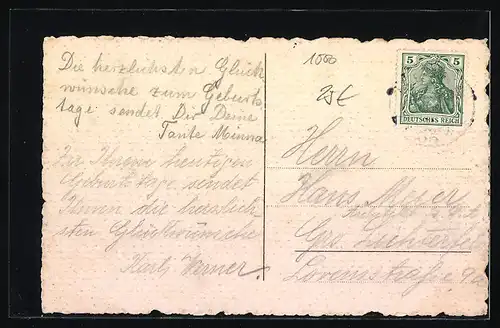 Die herzlichsten Glück
wünsche zum Geburts
tage sendet Dir Deine
Tante Minna
Zu Ihrem heutigen
Geburtstage sendet
Ihnen die herzlich-
sten Glückwünsche
Karl Werner.
1000
25€
5 5
DEUTSCHES REICH
Herrn
Hans Meyer
Gr. Lichterfelde
Lorenzstraße 9a